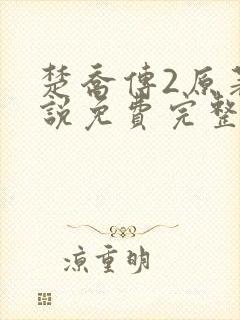 楚喬傳2原著
說免費完整
涼重明